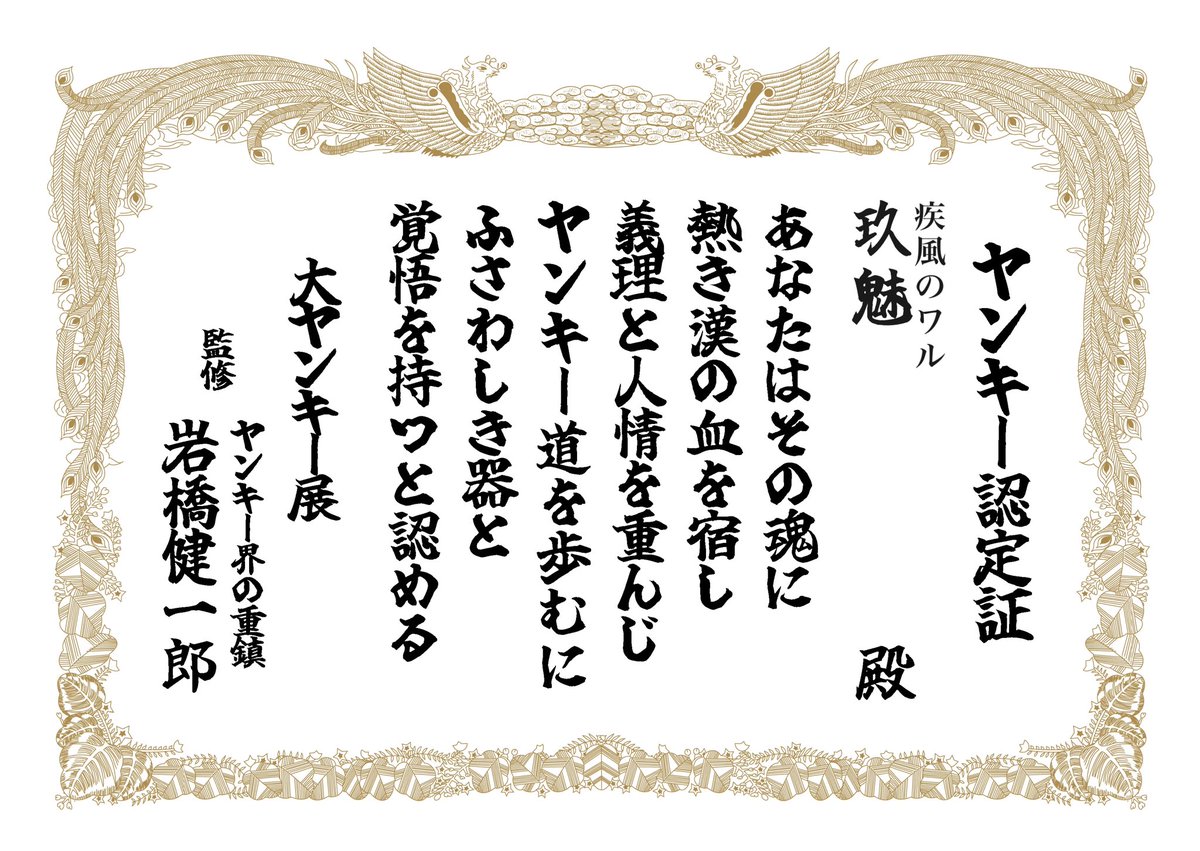 ヤンキー認定証
疾風のワル
玖魅 殿
あなたはその魂に
熱き漢の血を宿し
義理と人情を重んじ
ヤンキー道を歩むに
ふさわしき器と
覚悟を持つと認める
大ヤンキー展
監修
ヤンキー界の重鎮
岩橋健一郎